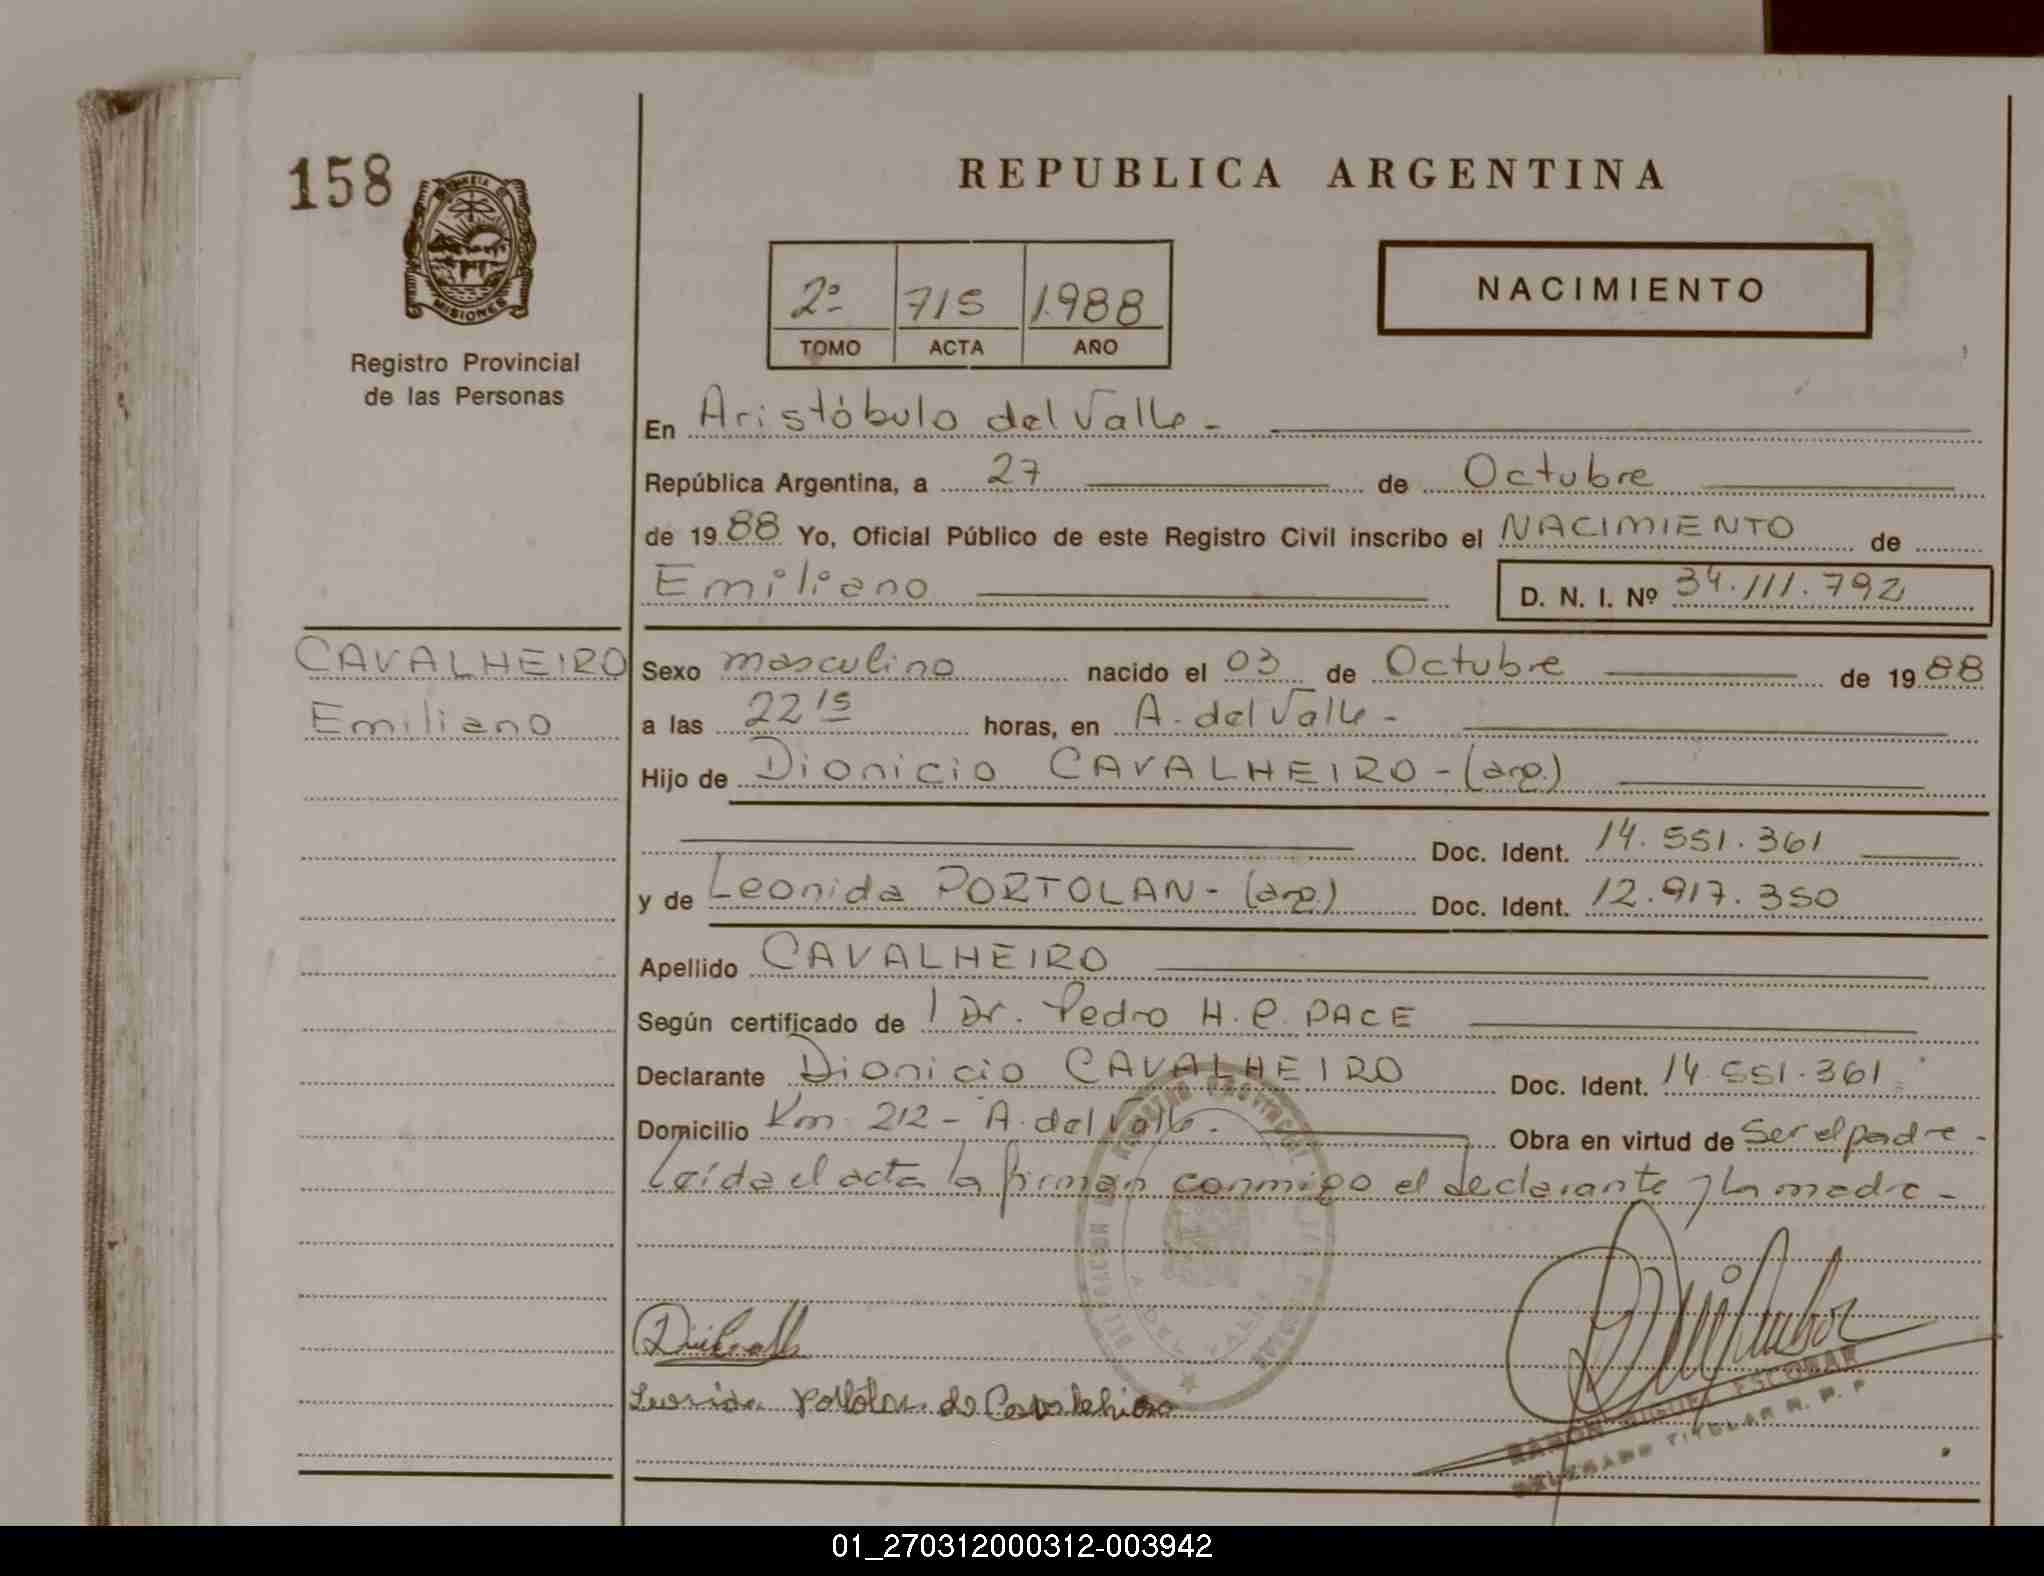 158
PROVINCIA DE MISIONES
Registro Provincial
de las Personas
REPUBLICA ARGENTINA
2º 715 1.988
TOMO ACTA AÑO
NACIMIENTO
En Aristóbulo del Valle -
República Argentina, a 27 de Octubre
de 1988 Yo, Oficial Público de este Registro Civil inscribo el NACIMIENTO de
Emiliano D. N. I. Nº 34.111.792
CAVALHEIRO
Emiliano
Sexo masculino nacido el 03 de Octubre de 1988
a las 22 15 horas, en A. del Valle -
Hijo de Dionicio CAVALHEIRO - (arg.)
Doc. Ident. 14.551.361
y de Leonida PORTOLAN - (arg.) Doc. Ident. 12.917.350
Apellido CAVALHEIRO
Según certificado de l Dr. Pedro H. C. PACE
Declarante Dionicio CAVALHEIRO Doc. Ident. 14.551.361
Domicilio Km 212 - A. del Valle - Obra en virtud de ser el padre -
Leída el acta la firman conmigo el declarante y la madre -
Portolan de Cavalheiro
RAMON MIGUEL ESCOBAR
DELEGADO TITULAR R. P. P.
01_270312000312-003942